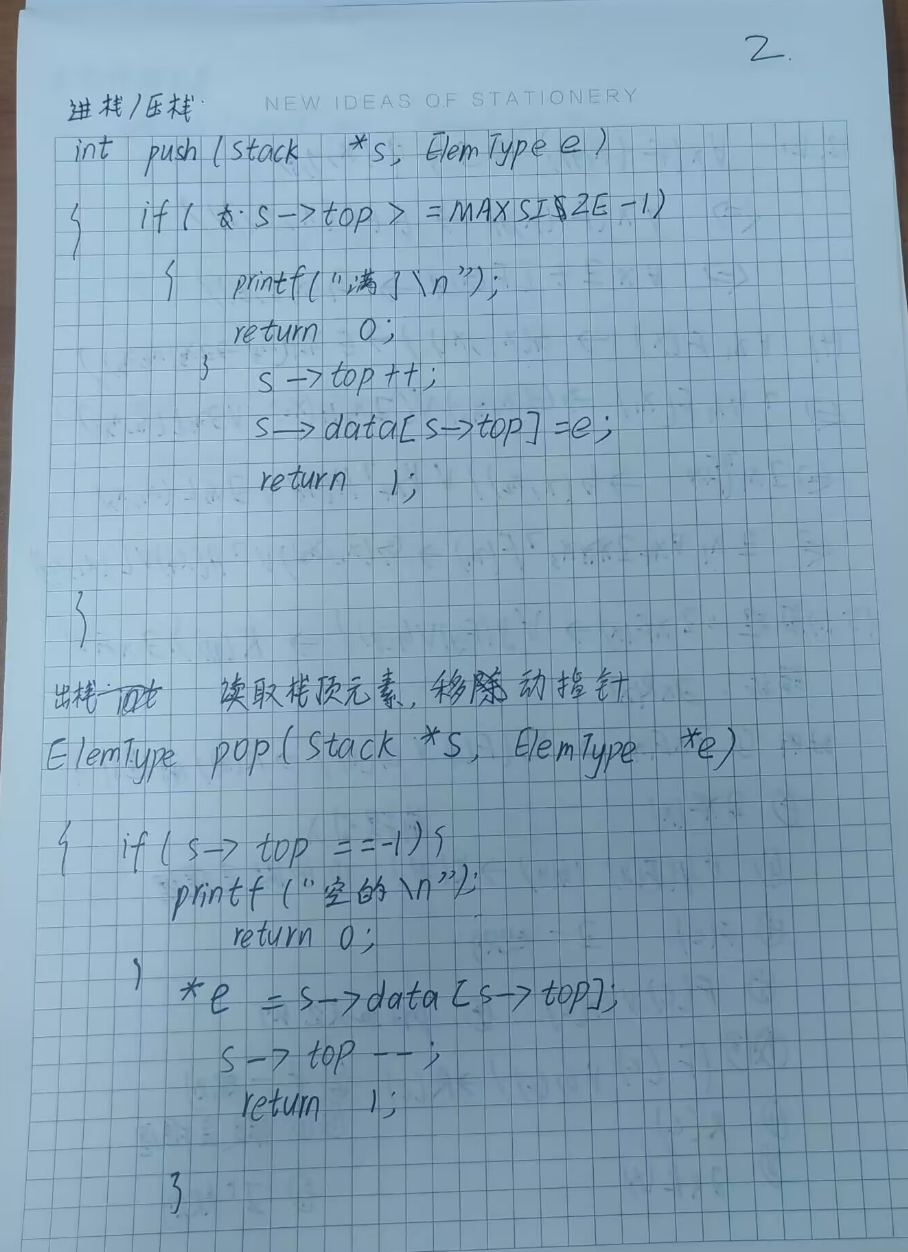 2.
NEW IDEAS OF STATIONERY
进栈/压栈.
int push(stack *s, ElemType e)
{ if( s->top > =MAXSISZE-1)
{ printf("满了\n");
return 0;
}
s->top++;
s->data[s->top]=e;
return 1;
}
出栈 int 读取栈顶元素,移除动指针
ElemType pop(stack *s, ElemType *e)
{ if(s-> top ==-1){
printf("空的\n");
return 0;
}
*e = s->data[s->top];
s->top --;
return 1;
}